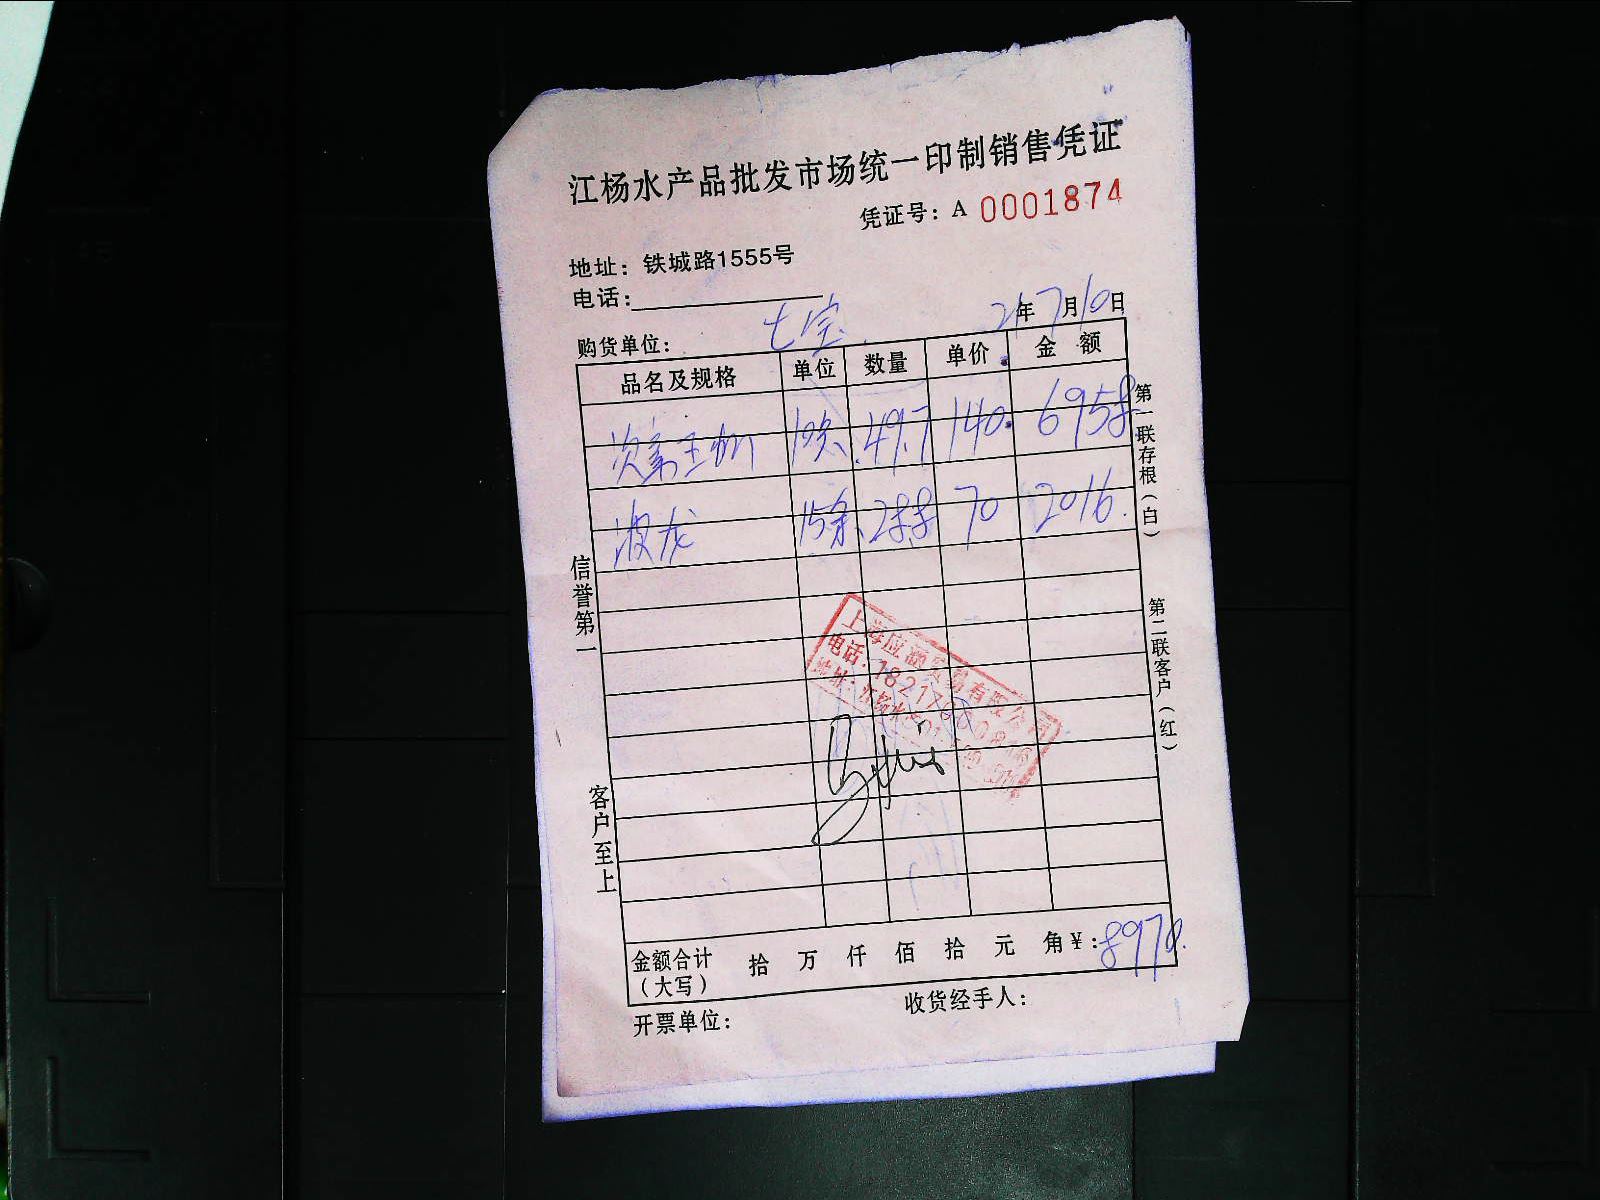 江杨水产品批发市场统一印制销售凭证
凭证号：A 0001874
地址：铁城路1555号
电话：
购货单位： 七宝 21年7月10日
品名及规格 单位 数量 单价 金额
49.7 140. 6958
波龙 15条 28.8 70 2016.
信誉第一
客户至上
第一联存根（白）
第二联客户（红）
上海应额贸易有限公司
电话：
金额合计（大写） 拾 万 仟 佰 拾 元 角 ¥：8970.
开票单位： 收货经手人：